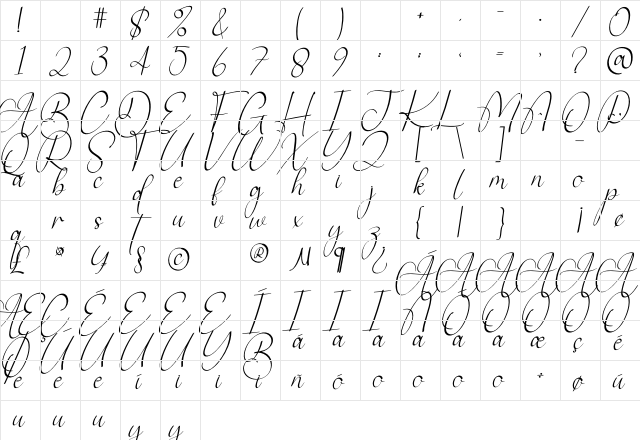 ! # $ % & ( ) * , - . / 0
1 2 3 4 5 6 7 8 9 : ; < = > ? @
A B C D E F G H I J K L M N O P
Q R S T U V W X Y Z [ \ ] _
a b c d e f g h i j k l m n o p
q r s t u v w x y z { | } ¡ ¢
£ ¤ ¥ § © ® µ ¶ ¿ À Á Â Ã Ä Å
Æ Ç È É Ê Ë Ì Í Î Ï Ñ Ò Ó Ô Õ Ö
Ø Ù Ú Û Ü Ý ß à á â ã ä å æ ç è
é ê ë ì í î ï ñ ò ó ô õ ö ÷ ø ù
ú û ü ý ÿ